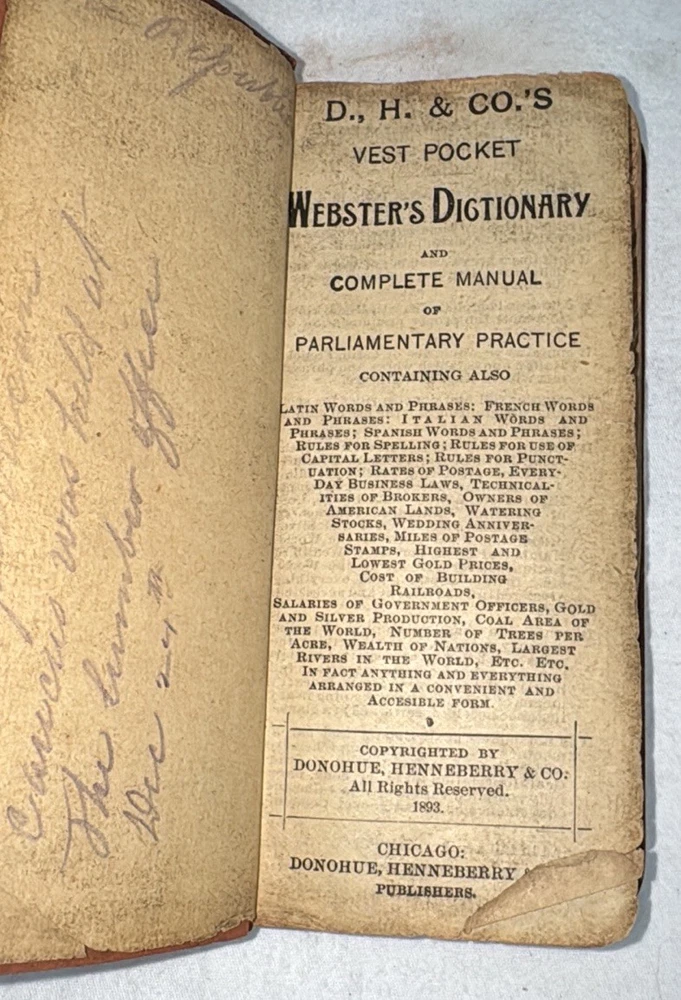 Republi
can
Caucus was held at
The Lumber office
Dec
D., H. & CO.'S
VEST POCKET
WEBSTER'S DICTIONARY
AND
COMPLETE MANUAL
OF
PARLIAMENTARY PRACTICE
CONTAINING ALSO
LATIN WORDS AND PHRASES: FRENCH WORDS
AND PHRASES: ITALIAN WORDS AND
PHRASES; SPANISH WORDS AND PHRASES;
RULES FOR SPELLING; RULES FOR USE OF
CAPITAL LETTERS; RULES FOR PUNCT-
UATION; RATES OF POSTAGE, EVERY-
DAY BUSINESS LAWS, TECHNICAL-
ITIES OF BROKERS, OWNERS OF
AMERICAN LANDS, WATERING
STOCKS, WEDDING ANNIVER-
SARIES, MILES OF POSTAGE
STAMPS, HIGHEST AND
LOWEST GOLD PRICES,
COST OF BUILDING
RAILROADS,
SALARIES OF GOVERNMENT OFFICERS, GOLD
AND SILVER PRODUCTION, COAL AREA OF
THE WORLD, NUMBER OF TREES PER
ACRE, WEALTH OF NATIONS, LARGEST
RIVERS IN THE WORLD, ETC. ETC.
IN FACT ANYTHING AND EVERYTHING
ARRANGED IN A CONVENIENT AND
ACCESIBLE FORM.
COPYRIGHTED BY
DONOHUE, HENNEBERRY & CO.
All Rights Reserved.
1893.
CHICAGO:
DONOHUE, HENNEBERRY
PUBLISHERS.